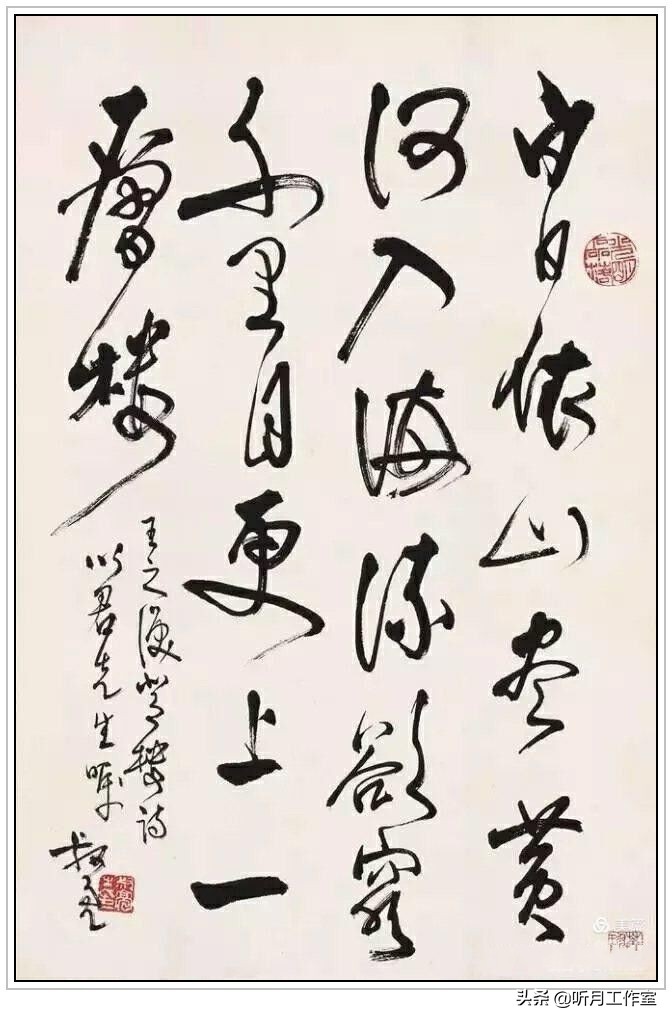 白日依山尽黄
河入海流欲穷
千里目更上一
層楼
王之渙登楼诗
以君先生嘱
叔亮
美篇
头条 @听月工作室